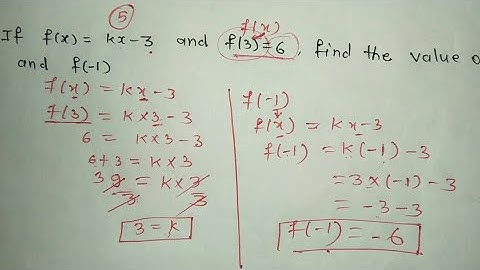 5
f(x)
If f(x) = kx-3 and f(3)=6, find the value o
and f(-1)
f(x) = kx-3
f(3) = k×3-3
6 = k×3-3
6+3 = k×3
3 9/3 = k×3/3
3 = k
f(-1)
f(x) = kx-3
f(-1) = k(-1)-3
= 3×(-1)-3
= -3-3
f(-1) = -6